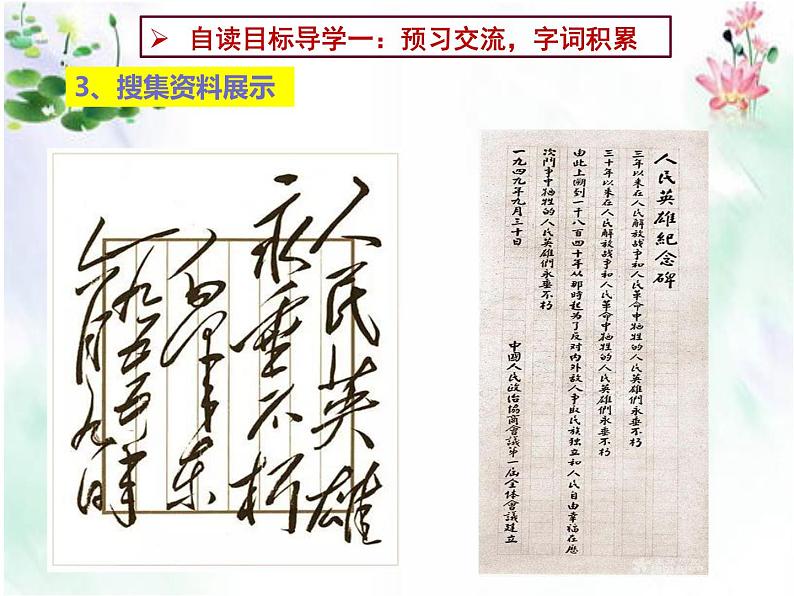 ➢ 自读目标导学一：预习交流，字词积累
3、搜集资料展示
人民英雄
永垂不朽
毛泽东
一九五五年
六月九日
人民英雄紀念碑
三年以来在人民解放战争和人民革命中牺牲的人民英雄們永垂不朽
三十年以来在人民解放战争和人民革命中牺牲的人民英雄們永垂不朽
由此上溯到一千八百四十年从那時起为了反对内外敌人争取民族独立和人民自由幸福在歷
次鬥争中牺牲的人民英雄們永垂不朽
一九四九年九月三十日
中國人民政治協商會議第一届全体會議建立